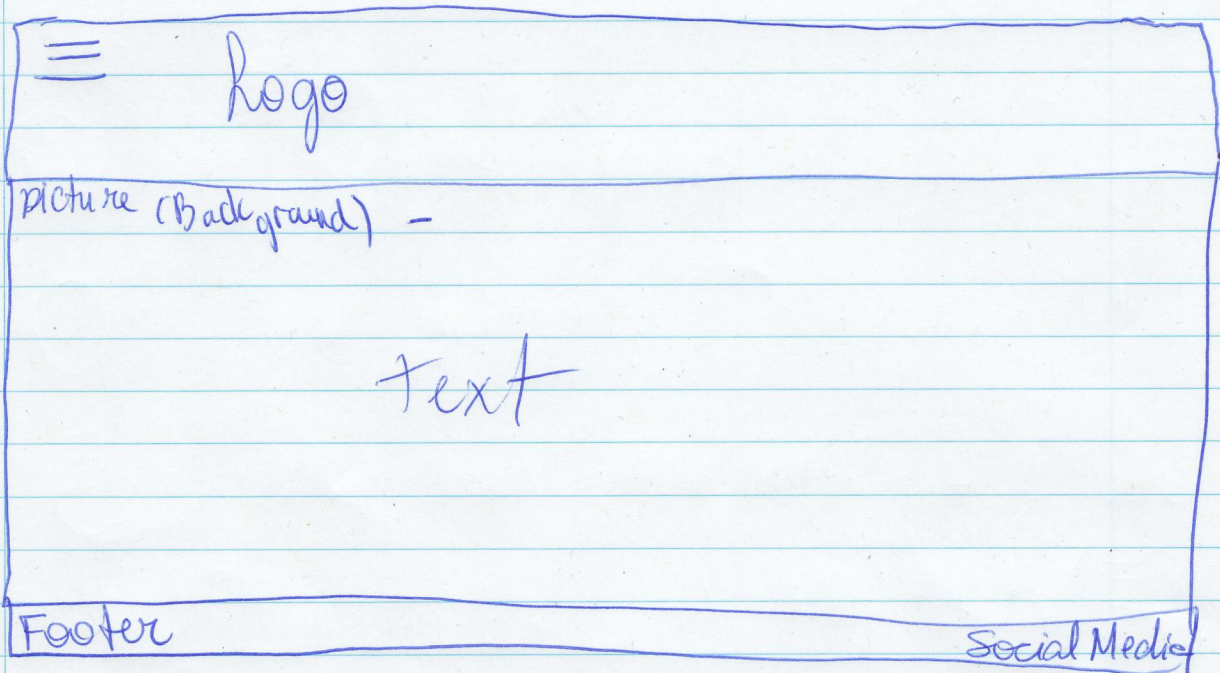 Logo
picture (Background) -
text
Footer
Social Media